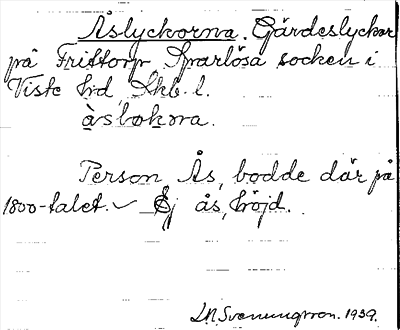 Åslyckorna. Gärdeslyckor
på Frittorp Sparlösa socken i
Viste hd, Skb. l.
åslokora.
Person Ås, bodde där på
1800-talet. ✓ Ej ås, höjd.
L.M. Svenungsson. 1939.